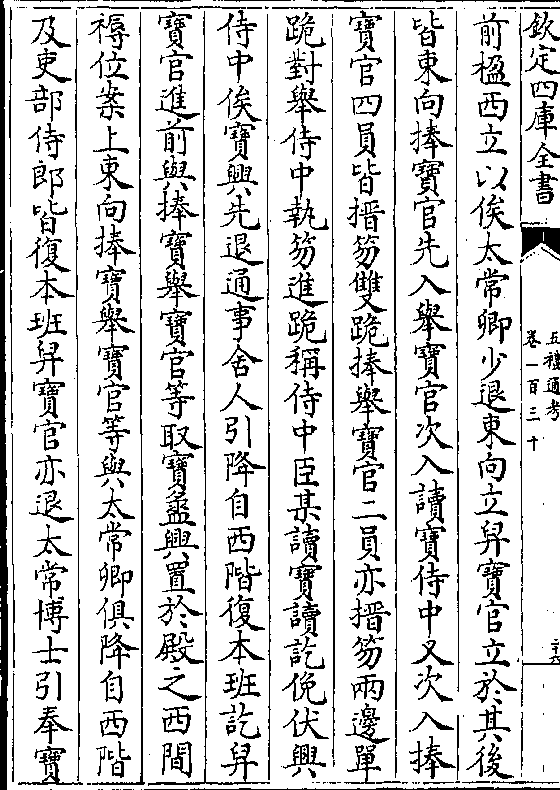 欽定四庫全書
五禮通考
卷一百三十
前楹西立以俟太常卿少退東向立舁寶官立於其後
皆東向捧寶官先入舉寶官次入讀寶侍中又次入捧
寶官四員皆搢笏雙跪捧舉寶官二員亦搢笏兩邊單
跪對舉侍中執笏進跪稱侍中臣某讀寶讀訖俛伏興
侍中俟寶興先退通事舍人引降自西階復本班訖舁
寶官進前與捧寶舉寶官等取寶盝興置於殿之西間
褥位案上東向捧寶舉寶官等與太常卿俱降自西階
及吏部侍郎皆復本班舁寶官亦退太常博士引奉寶